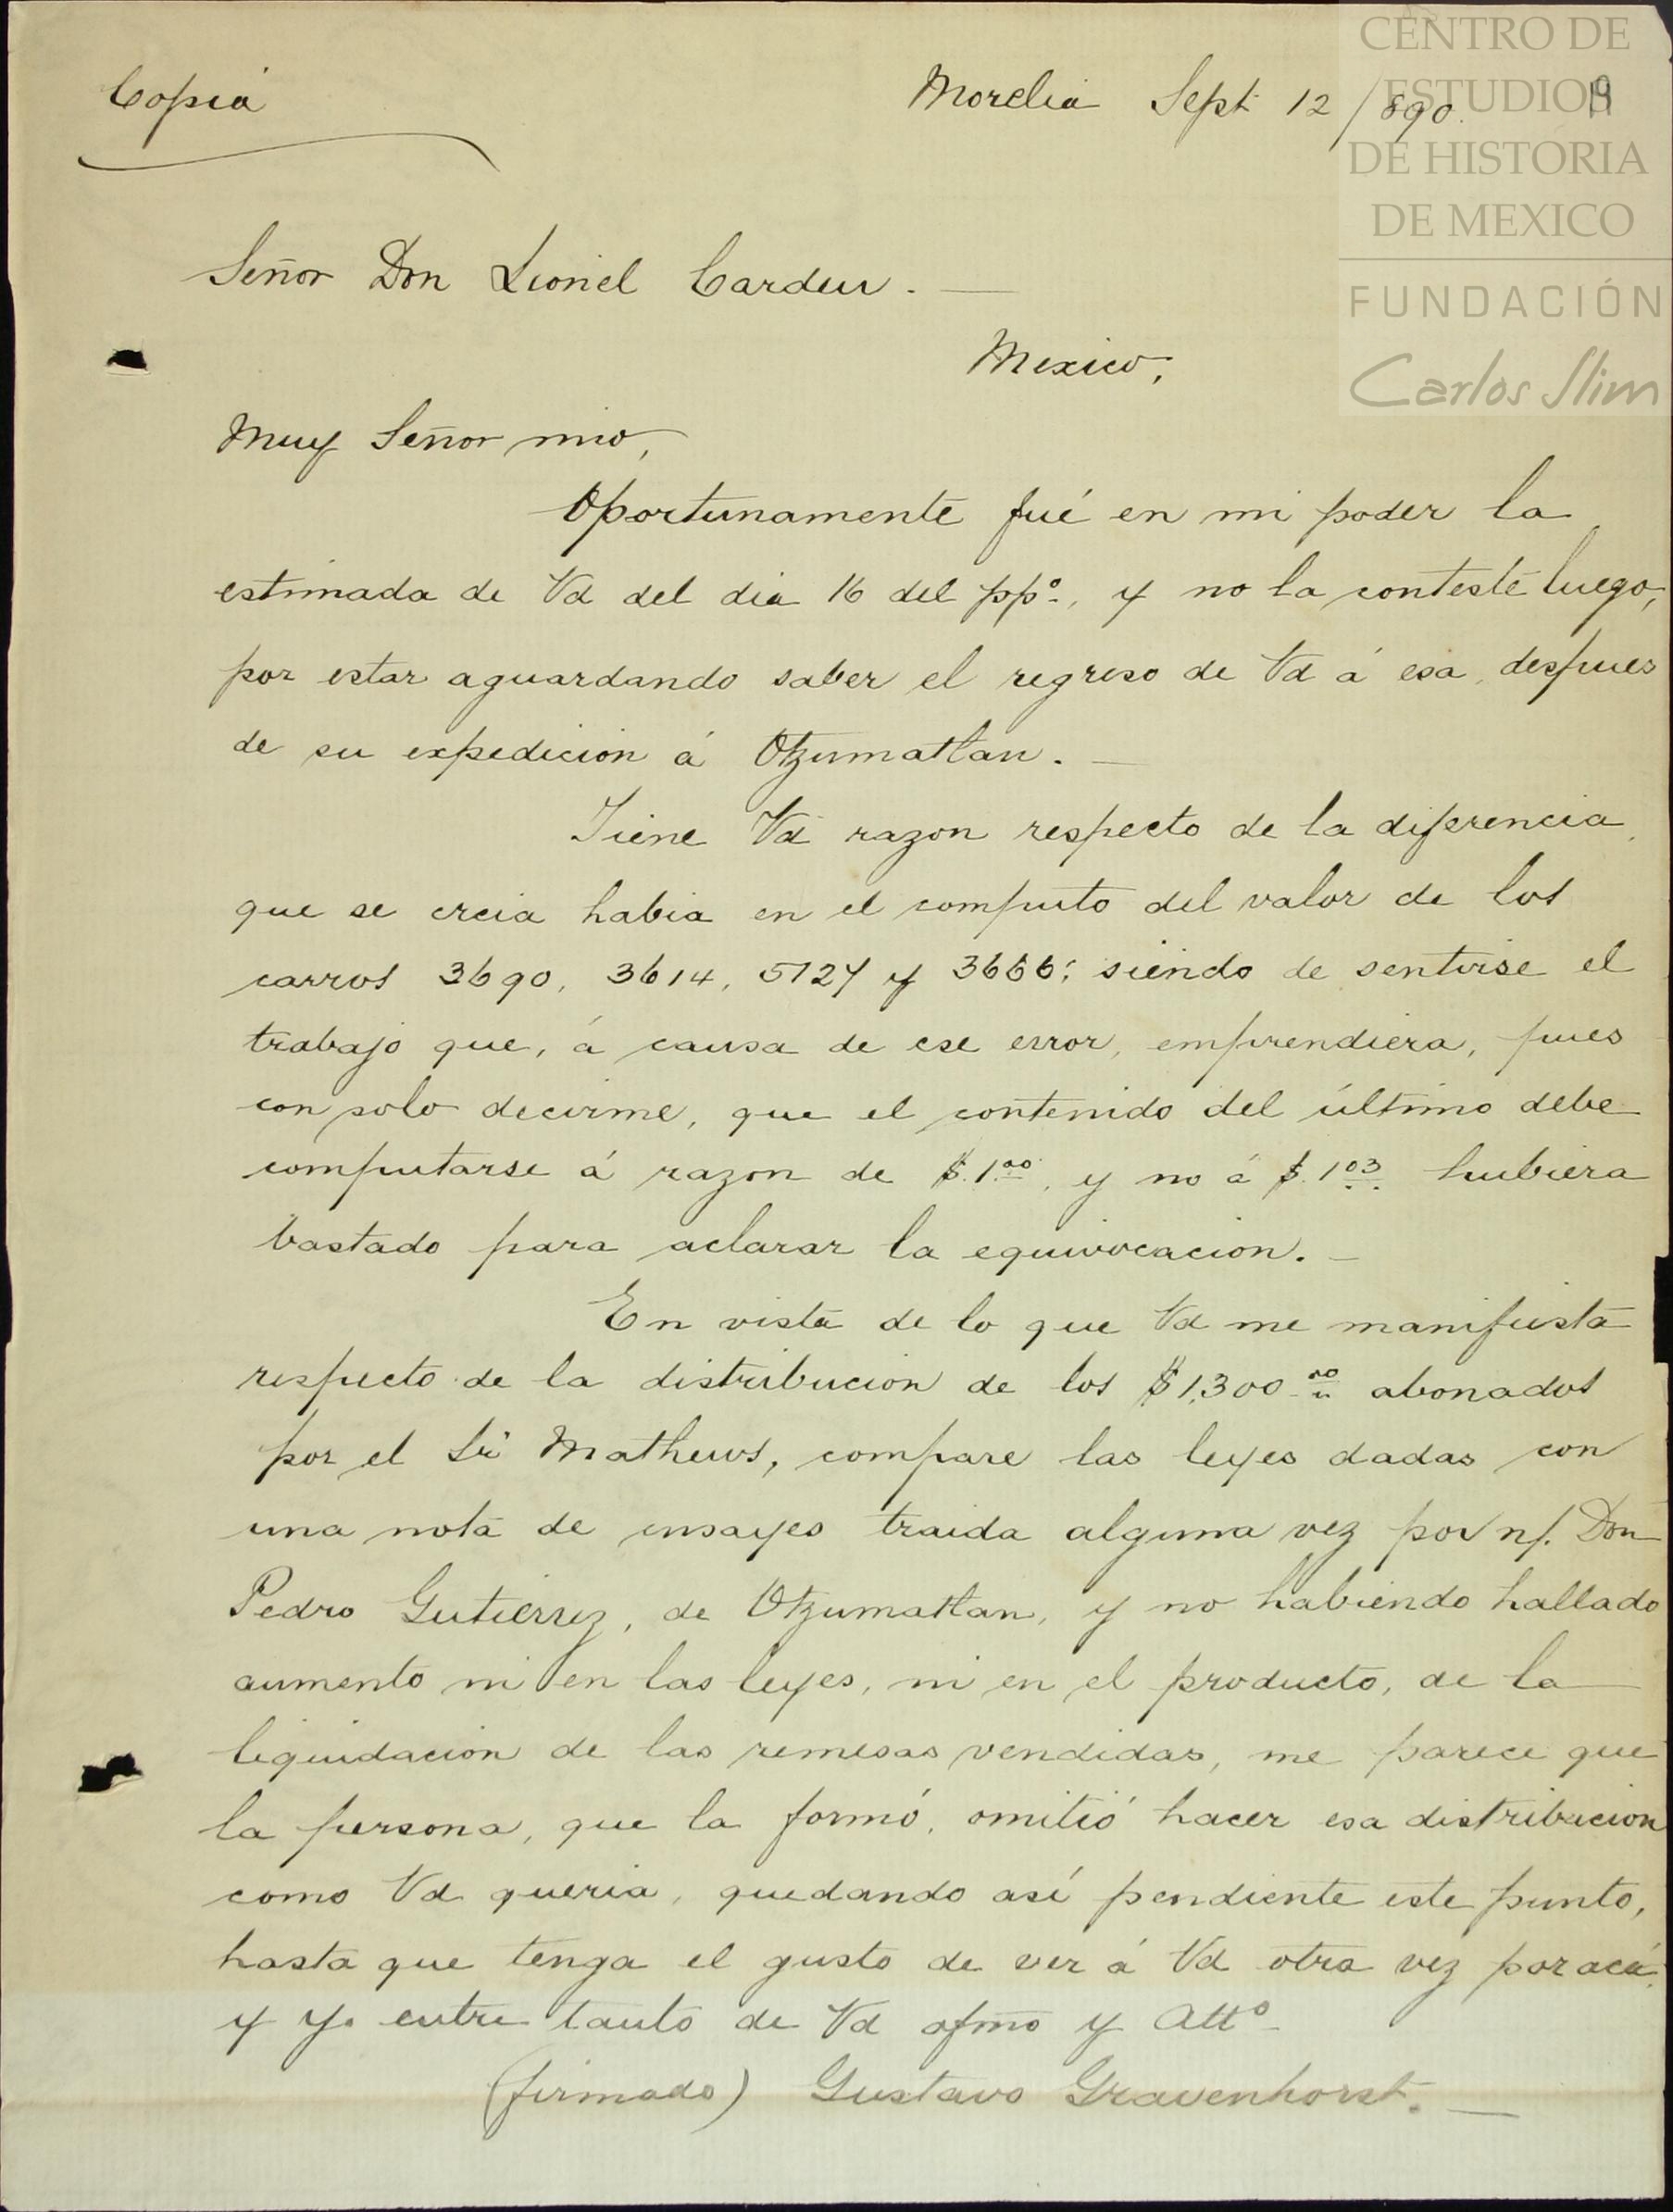 Copia
Morelia Sept 12/890.
CENTRO DE
ESTUDIOS
DE HISTORIA
DE MEXICO
FUNDACIÓN
Carlos Slim
Señor Don Lionel Carden. —
Mexico,
Muy Señor mio,
Oportunamente fué en mi poder la
estimada de Vd del dia 16 del ppº, y no la contesté luego,
por estar aguardando saber el regreso de Vd á esa, despues
de su expedicion á Otzumatlan. —
Tiene Vd razon respecto de la diferencia
que se creia habia en el computo del valor de los
carros 3690, 3614, 5127 y 3666; siendo de sentirse el
trabajo que, á causa de ese error, emprendiera, pues
con solo decirme, que el contenido del último debe
computarse á razon de $.1.00, y no á $.1.03 hubiera
bastado para aclarar la equivocacion. —
En vista de lo que Vd me manifiesta
respecto de la distribucion de los $1,300.00 abonados
por el Sr Mathews, compare las leyes dadas con
una nota de ensayes traida alguna vez por n/. Don
Pedro Gutierrez, de Otzumatlan, y no habiendo hallado
aumento ni en las leyes, ni en el producto, de la
liquidacion de las remesas vendidas, me parece que
la persona, que la formó, omitió hacer esa distribucion
como Vd queria, quedando así pendiente este punto,
hasta que tenga el gusto de ver á Vd otra vez por acá.
y yo entre tanto de Vd afmo y Attº
(firmado) Gustavo Gravenhorst. —